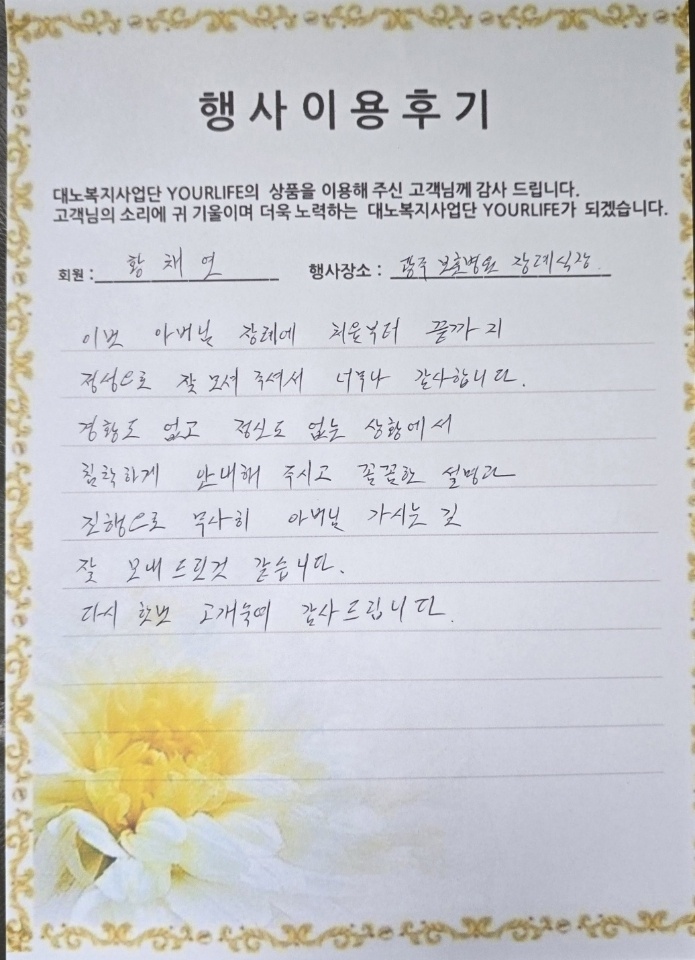 행사이용후기
대노복지사업단 YOURLIFE의 상품을 이용해 주신 고객님께 감사 드립니다.
고객님의 소리에 귀 기울이며 더욱 노력하는 대노복지사업단 YOURLIFE가 되겠습니다.
회원 : 황 채 연 행사장소 : 광주 보훈병원 장례식장
이번 아버님 장례에 처음부터 끝까지
정성으로 잘 모셔 주셔서 너무나 감사합니다.
경황도 없고 정신도 없는 상황에서
침착하게 안내해 주시고 꼼꼼한 설명과
진행으로 무사히 아버님 가시는 길
잘 보내 드린것 같습니다.
다시 한번 고개숙여 감사드립니다.